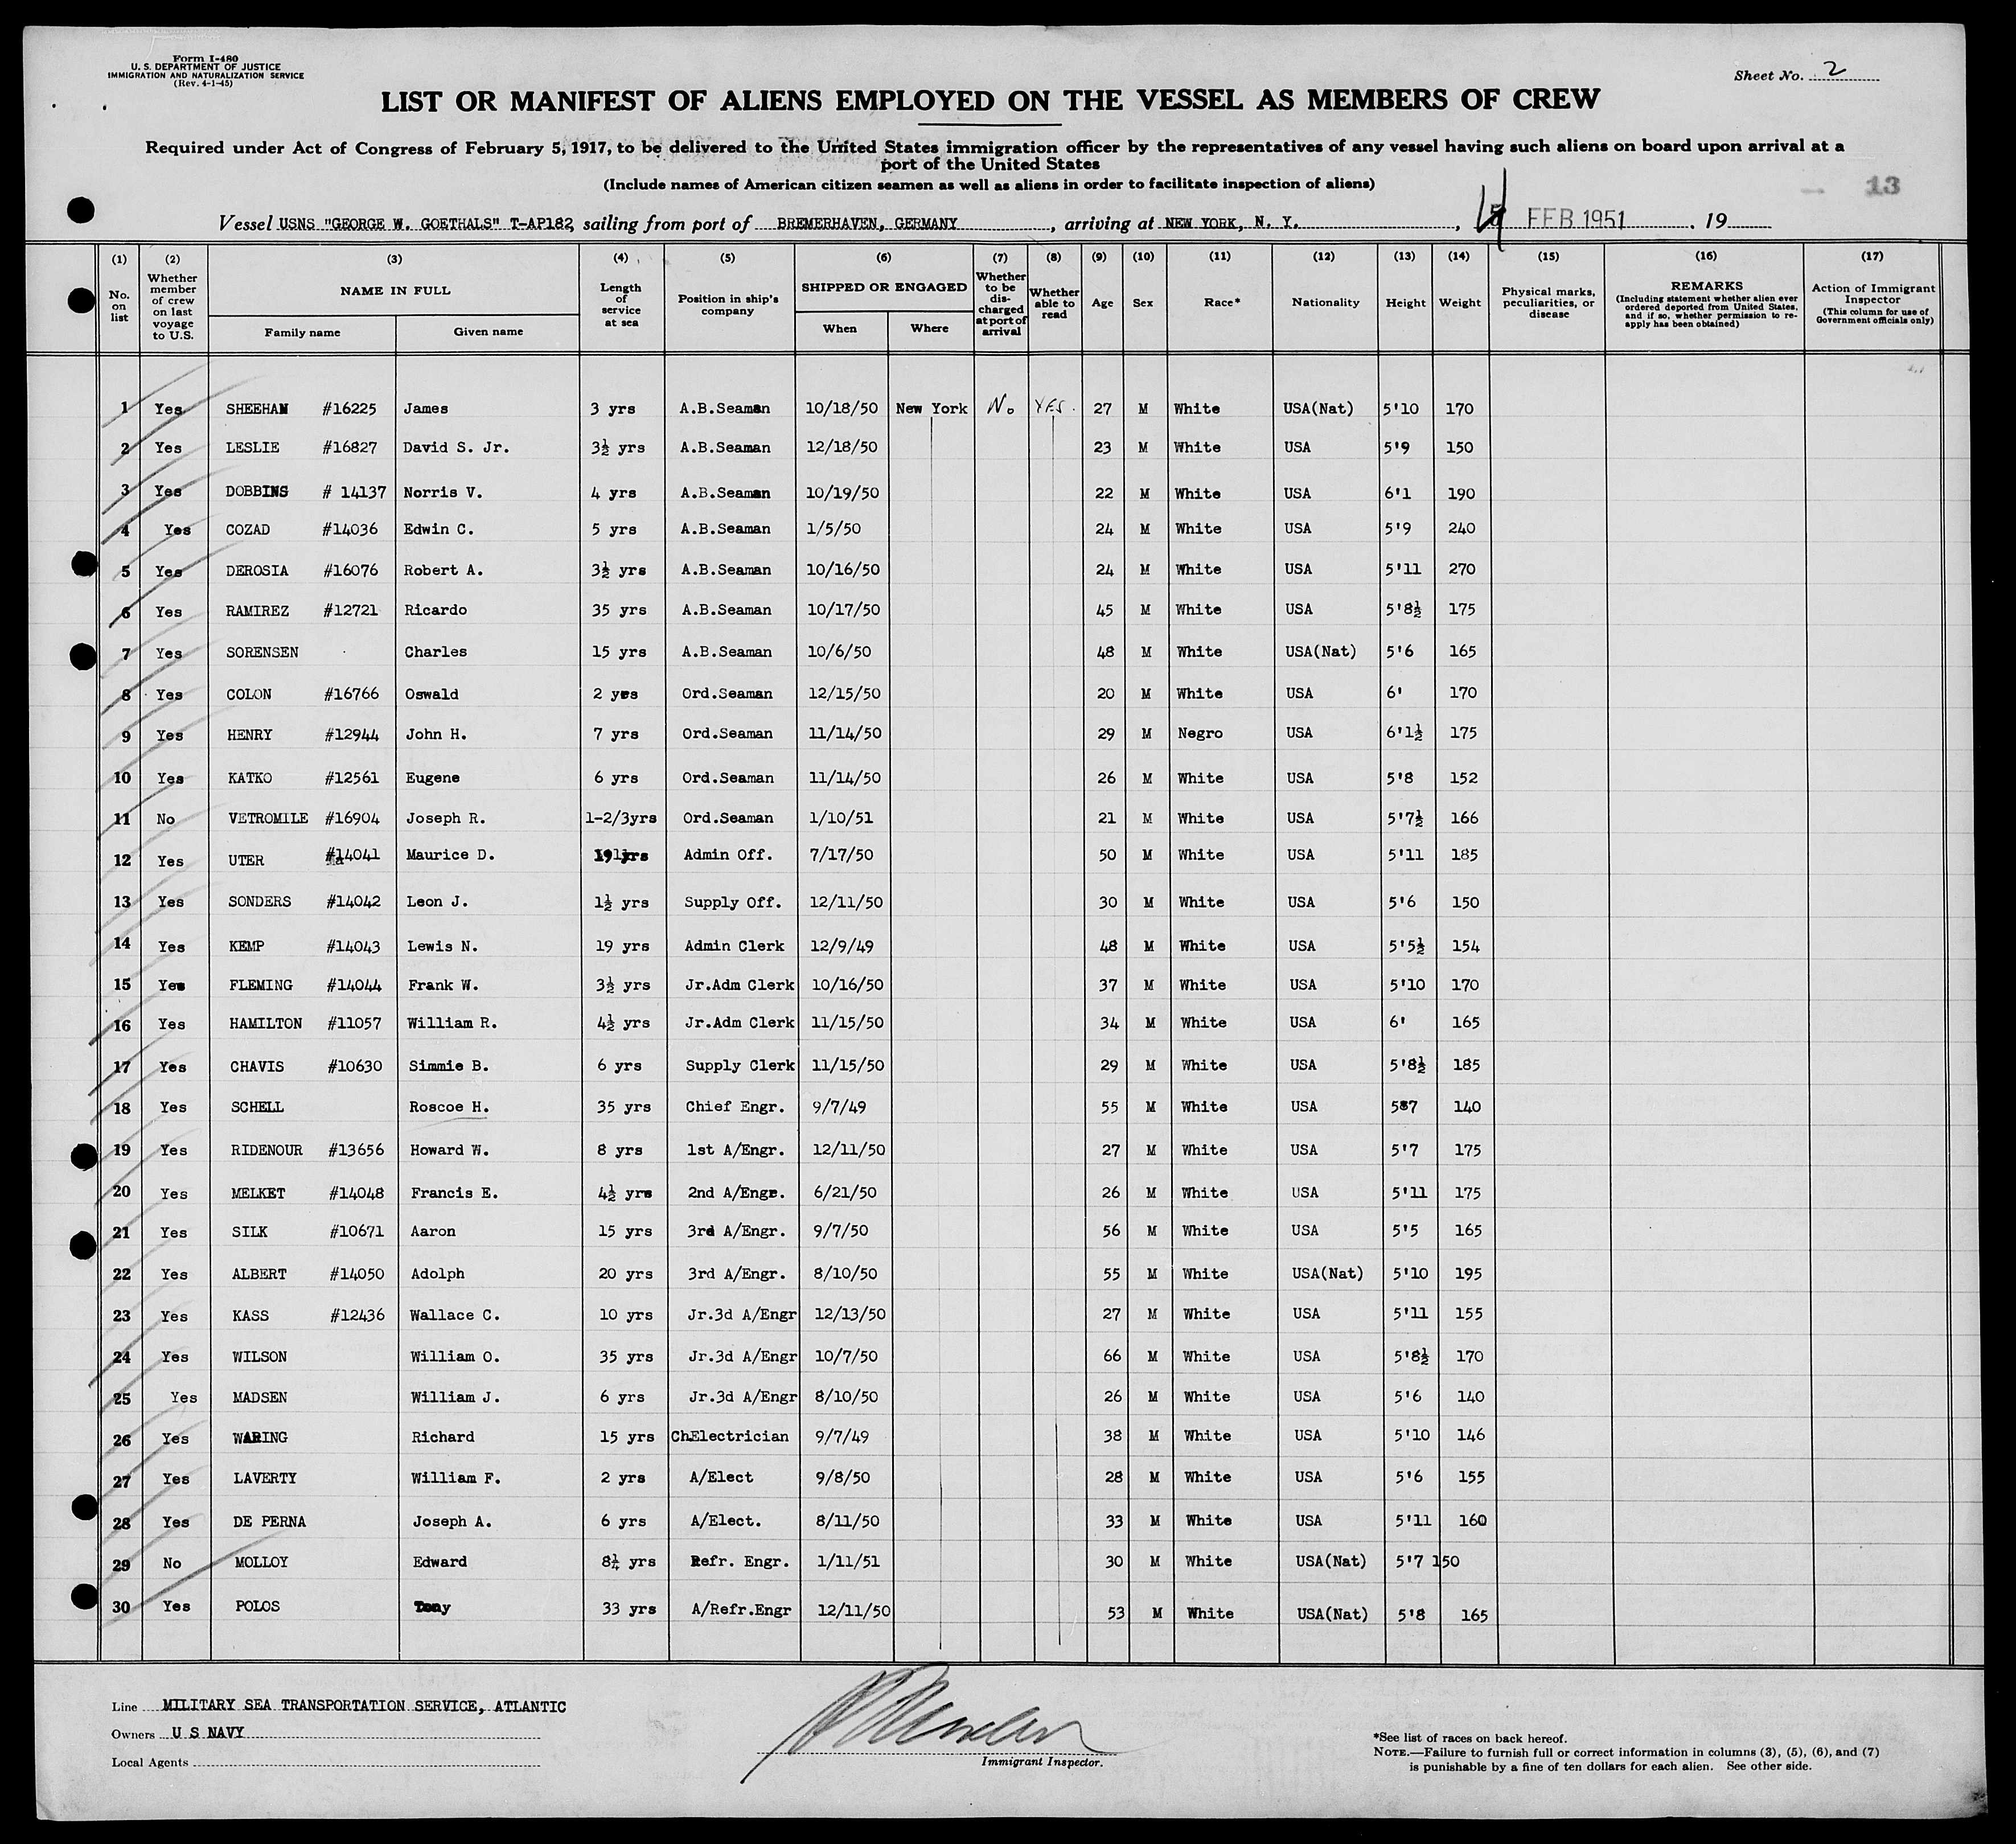 Form I-480
U. S. DEPARTMENT OF JUSTICE
IMMIGRATION AND NATURALIZATION SERVICE
(Rev. 4-1-45)
Sheet No. 2
LIST OR MANIFEST OF ALIENS EMPLOYED ON THE VESSEL AS MEMBERS OF CREW
Required under Act of Congress of February 5, 1917, to be delivered to the United States immigration officer by the representatives of any vessel having such aliens on board upon arrival at a
port of the United States
(Include names of American citizen seamen as well as aliens in order to facilitate inspection of aliens)
13
Vessel USNS "GEORGE W. GOETHALS" T-AP182, sailing from port of BREMERHAVEN, GERMANY, arriving at NEW YORK, N. Y., 4 FEB 1951, 19
(1) No. on list (2) Whether member of crew on last voyage to U.S. (3) NAME IN FULL Family name Given name (4) Length of service at sea (5) Position in ship's company (6) SHIPPED OR ENGAGED When Where (7) Whether to be discharged at port of arrival (8) Whether able to read (9) Age (10) Sex (11) Race* (12) Nationality (13) Height (14) Weight (15) Physical marks, peculiarities, or disease (16) REMARKS (Including statement whether alien ever ordered deported from United States, and if so, whether permission to re-apply has been obtained) (17) Action of Immigrant Inspector (This column for use of Government officials only)
1 Yes SHEEHAN #16225 James 3 yrs A.B.Seaman 10/18/50 New York No YES. 27 M White USA(Nat) 5'10 170
2 Yes LESLIE #16827 David S. Jr. 3½ yrs A.B.Seaman 12/18/50 23 M White USA 5'9 150
3 Yes DOBBINS # 14137 Norris V. 4 yrs A.B.Seaman 10/19/50 22 M White USA 6'1 190
4 Yes COZAD #14036 Edwin C. 5 yrs A.B.Seaman 1/5/50 24 M White USA 5'9 240
5 Yes DEROSIA #16076 Robert A. 3½ yrs A.B.Seaman 10/16/50 24 M White USA 5'11 270
6 Yes RAMIREZ #12721 Ricardo 35 yrs A.B.Seaman 10/17/50 45 M White USA 5'8½ 175
7 Yes SORENSEN Charles 15 yrs A.B.Seaman 10/6/50 48 M White USA(Nat) 5'6 165
8 Yes COLON #16766 Oswald 2 yrs Ord.Seaman 12/15/50 20 M White USA 6' 170
9 Yes HENRY #12944 John H. 7 yrs Ord.Seaman 11/14/50 29 M Negro USA 6'1½ 175
10 Yes KATKO #12561 Eugene 6 yrs Ord.Seaman 11/14/50 26 M White USA 5'8 152
11 No VETROMILE #16904 Joseph R. 1-2/3yrs Ord.Seaman 1/10/51 21 M White USA 5'7½ 166
12 Yes UTER #14041 Maurice D. Admin Off. 7/17/50 50 M White USA 5'11 185
13 Yes SONDERS #14042 Leon J. 1½ yrs Supply Off. 12/11/50 30 M White USA 5'6 150
14 Yes KEMP #14043 Lewis N. 19 yrs Admin Clerk 12/9/49 48 M White USA 5'5½ 154
15 Yes FLEMING #14044 Frank W. 3½ yrs Jr.Adm Clerk 10/16/50 37 M White USA 5'10 170
16 Yes HAMILTON #11057 William R. 4½ yrs Jr.Adm Clerk 11/15/50 34 M White USA 6' 165
17 Yes CHAVIS #10630 Simmie B. 6 yrs Supply Clerk 11/15/50 29 M White USA 5'8½ 185
18 Yes SCHELL Roscoe H. 35 yrs Chief Engr. 9/7/49 55 M White USA 5'7 140
19 Yes RIDENOUR #13656 Howard W. 8 yrs 1st A/Engr. 12/11/50 27 M White USA 5'7 175
20 Yes MELKET #14048 Francis E. 4½ yrs 2nd A/Engr. 6/21/50 26 M White USA 5'11 175
21 Yes SILK #10671 Aaron 15 yrs 3rd A/Engr. 9/7/50 56 M White USA 5'5 165
22 Yes ALBERT #14050 Adolph 20 yrs 3rd A/Engr. 8/10/50 55 M White USA(Nat) 5'10 195
23 Yes KASS #12436 Wallace C. 10 yrs Jr.3d A/Engr 12/13/50 27 M White USA 5'11 155
24 Yes WILSON William O. 35 yrs Jr.3d A/Engr 10/7/50 66 M White USA 5'8½ 170
25 Yes MADSEN William J. 6 yrs Jr.3d A/Engr 8/10/50 26 M White USA 5'6 140
26 Yes WARING Richard 15 yrs ChElectrician 9/7/49 38 M White USA 5'10 146
27 Yes LAVERTY William F. 2 yrs A/Elect 9/8/50 28 M White USA 5'6 155
28 Yes DE PERNA Joseph A. 6 yrs A/Elect. 8/11/50 33 M White USA 5'11 160
29 No MOLLOY Edward 8¼ yrs Refr. Engr. 1/11/51 30 M White USA(Nat) 5'7 150
30 Yes POLOS Tony 33 yrs A/Refr.Engr 12/11/50 53 M White USA(Nat) 5'8 165
Line MILITARY SEA TRANSPORTATION SERVICE, ATLANTIC
Owners U S NAVY
Local Agents
Immigrant Inspector.
*See list of races on back hereof.
NOTE.—Failure to furnish full or correct information in columns (3), (5), (6), and (7)
is punishable by a fine of ten dollars for each alien. See other side.